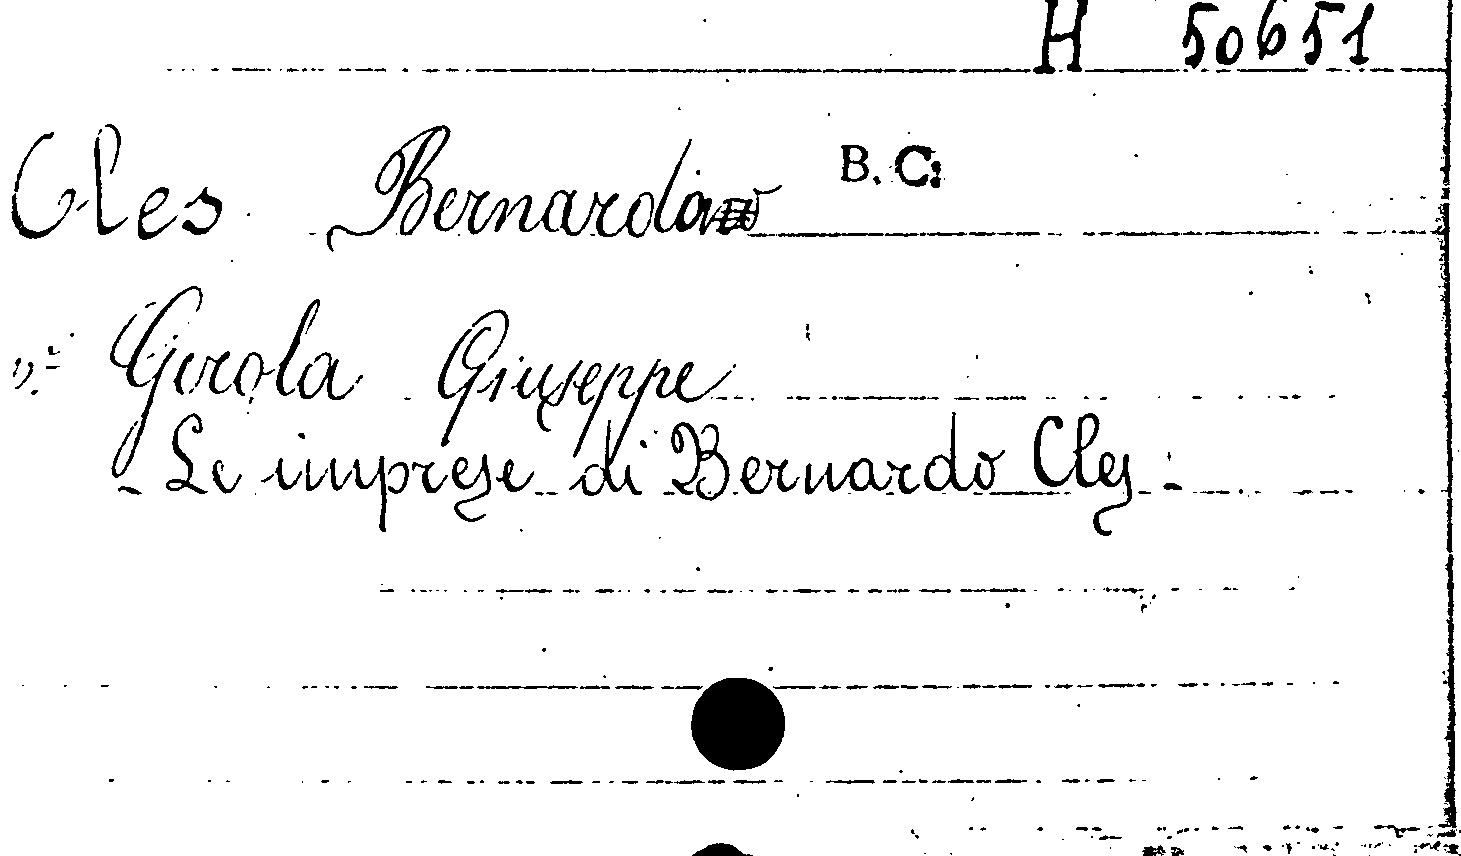 H 50651
Cles Bernardo B. C.
v. Gerola Giuseppe
- Le imprese di Bernardo Cles -